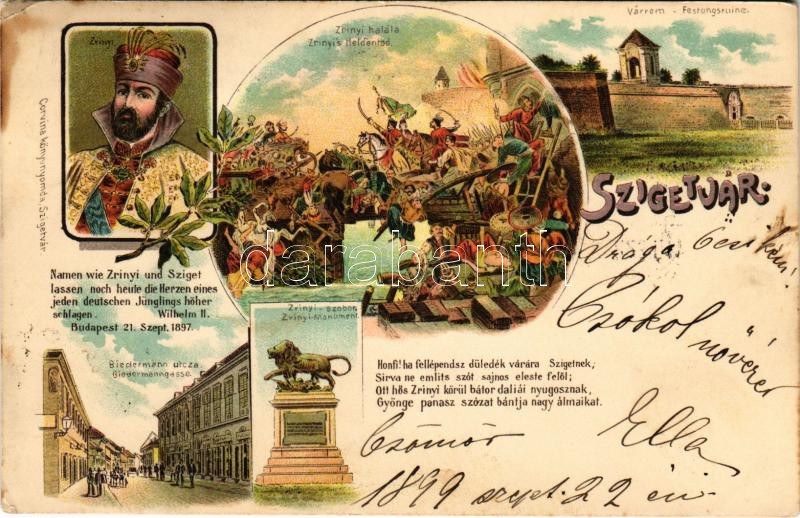 Zrinyi
Zrinyi halála
Zrinyi's Heldentod.
Várrom - Festungsruine.
Corvina könyvnyomda, Szigetvár
SZIGETVÁR.
darabanth
Namen wie Zrinyi und Sziget
lassen noch heute die Herzen eines
jeden deutschen Jünglings höher
schlagen. Wilhelm II.
Budapest 21. Sept. 1897.
Biedermann utcza
Biedermanngasse.
Zrinyi - szobor.
Zrinyi-Monument.
Honfi! ha fellépendsz düledék várára Szigetnek,
Sirva ne emlits szót sajnos eleste felöl;
Ott hős Zrinyi körül bátor daliái nyugosznak,
Gyönge panasz szózat bántja nagy álmaikat.
Draga
Csókol
növéred
Ella
Csömör
1899 szept. 22 én